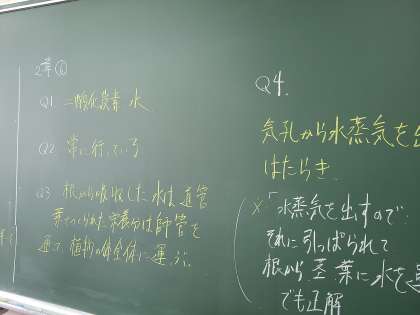 2章①
Q1 二酸化炭素 水
Q2 常に行っている
Q3 根から吸収した水は道管
葉でつくられた栄養分は師管を
通って植物の体全体に運ぶ。
Q4.
気孔から水蒸気を出
はたらき
※「水蒸気を出すので
それに引っぱられて
根から茎 葉に水を運
でも正解